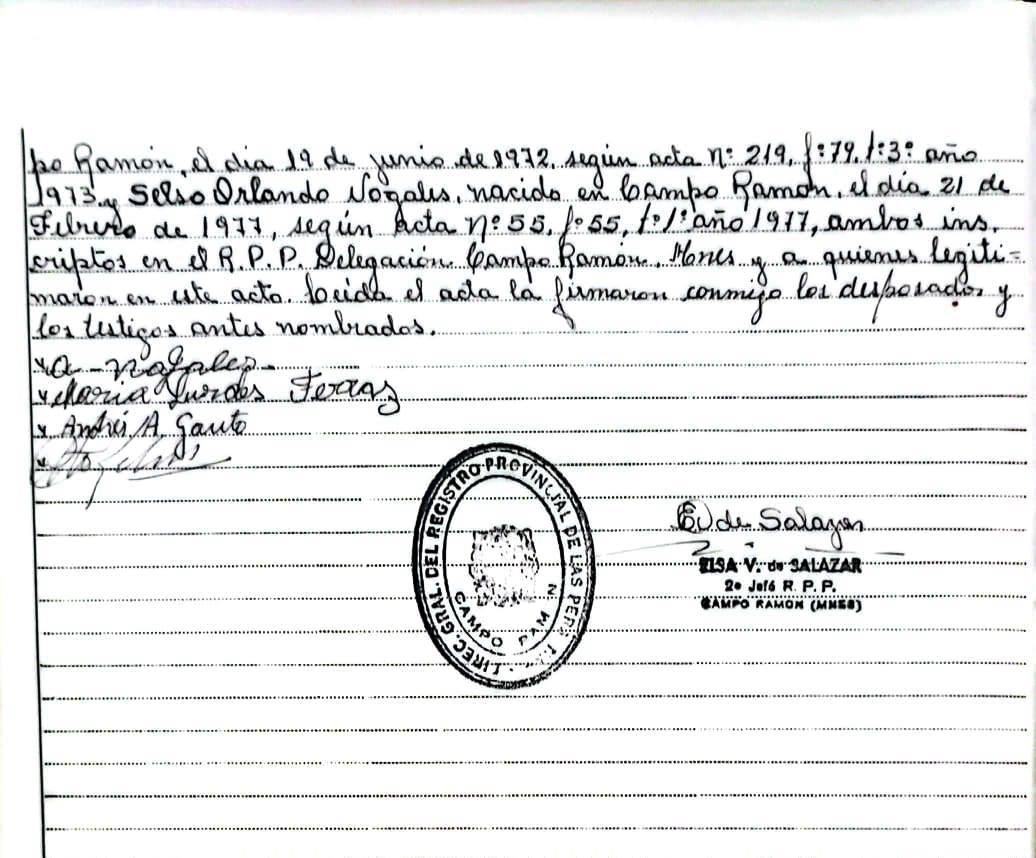 po Ramón, el día 19 de junio de 1972, según acta Nº 219, fº 79, tº 3º año
1973 y Selso Orlando Nogales, nacido en Campo Ramón, el día 21 de
Febrero de 1977, según Acta Nº 55, fº 55, tº 1º año 1977, ambos ins.
criptos en el R.P.P. Delegación Campo Ramón, Mnes y a quienes legiti=
maron en este acto. Leída el acta la firmaron conmigo los desposados y
los testigos antes nombrados.
x a - nogales -
x Maria Lurdes Ferraz
x Andrés A. Gauto
x
DIREC. GRAL. DEL REGISTRO PROVINCIAL DE LAS PER
CAMPO RAM N
E V de Salazar
ELSA V. de SALAZAR
2º Jefe R. P. P.
CAMPO RAMON (MNES)